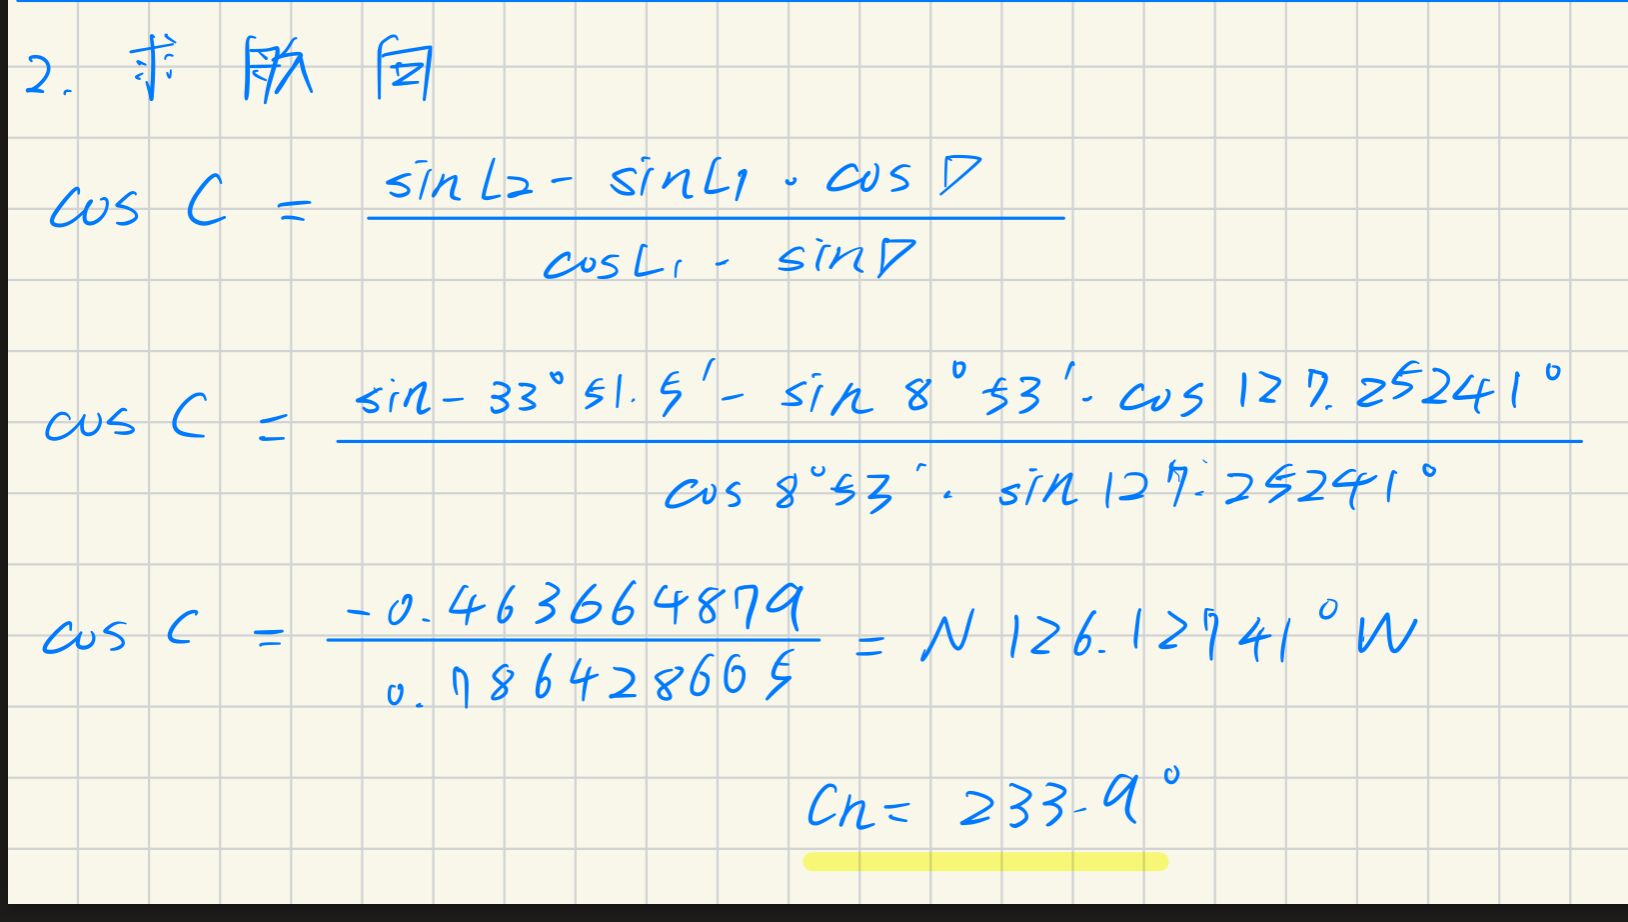 2. 求 航 向
cos C = (sin L2 - sin L1 · cos D) / (cos L1 · sin D)
cos C = (sin - 33° 51.5′ - sin 8° 53′ · cos 127.25241°) / (cos 8° 53′ · sin 127.25241°)
cos C = -0.463664879 / 0.786428605 = N 126.12741° W
Cn = 233.9°